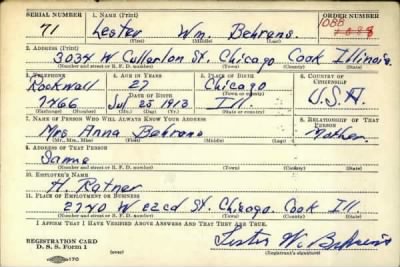 SERIAL NUMBER 1. NAME (Print) ORDER NUMBER
71 Lester Wm. Behrens 1088
1088
(First) (Middle) (Last)
2. ADDRESS (Print)
3034 W Cullerton St. Chicago Cook Illinois
(Number and street or R. F. D. number) (Town) (County) (State)
3. TELEPHONE 4. AGE IN YEARS 5. PLACE OF BIRTH 6. COUNTRY OF CITIZENSHIP
Rockwell 27 Chicago
DATE OF BIRTH (Town or county)
7266 Jul 25 1913 Ill. U.S.A.
(Mo.) (Day) (Yr.) (State or country)
7. NAME OF PERSON WHO WILL ALWAYS KNOW YOUR ADDRESS 8. RELATIONSHIP OF THAT PERSON
Mrs Anna Behrens Mother
(Mr., Mrs., Miss) (First) (Middle) (Last)
9. ADDRESS OF THAT PERSON
Same
(Number and street or R. F. D. number) (Town) (County) (State)
10. EMPLOYER'S NAME
H. Ratner
11. PLACE OF EMPLOYMENT OR BUSINESS
2740 W 22nd St. Chicago. Cook Ill.
(Number and street or R. F. D. number) (Town) (County) (State)
I AFFIRM THAT I HAVE VERIFIED ABOVE ANSWERS AND THAT THEY ARE TRUE.
REGISTRATION CARD Lester W. Behrens
D. S. S. Form 1 (over) (Registrant's signature)